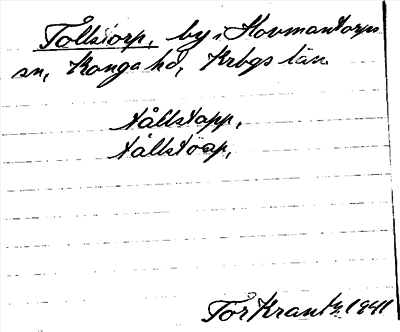 Tollstorp, by i Hovmantorps
sn, Konga hd, Krbgs län
tållstapp,
tållstorp,
Tor Krantz 1941